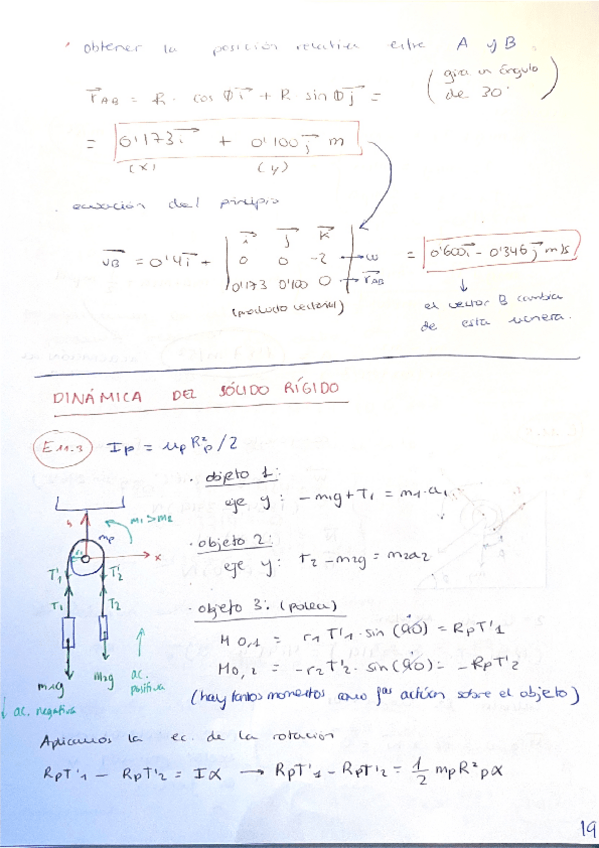 · obtener la posición relativa entre A y B.
(gira un ángulo
de 30°)
r_AB = R · cos Φ i + R sin Φ j =
= 0'173 i + 0'100 j m
(x) (y)
. ecuación del principio
v_B = 0'4 i + | i j k |
| 0 0 -2 | → ω = 0'600 i - 0'346 j m/s
| 0'173 0'100 0 | → r_AB
(producto vectorial)
el vector B cambia
de esta manera.
DINÁMICA DEL SÓLIDO RÍGIDO
E 11.3 Ip = mp R²p /2
· objeto 1:
eje y: -m1g + T1 = m1·a1
· objeto 2:
eje y: T2 - m2g = m2a2
· objeto 3: (polea)
M0,1 = r1 T'1 · sin (90) = Rp T'1
M0,2 = -r2 T'2 · sin (90) = -Rp T'2
(hay tantos momentos como fas actúan sobre el objeto)
m1 > m2
mp
x
T'1 T'2
T1 T2
m1g m2g
ac. positiva
↓ ac. negativa
Aplicamos la ec. de la rotación
RpT'1 - RpT'2 = Iα → RpT'1 - RpT'2 = 1/2 mp R²p α
19